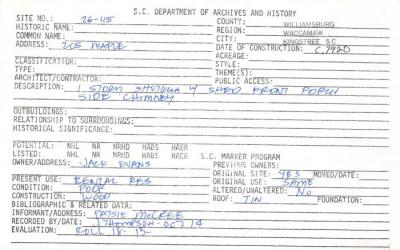 S.C. DEPARTMENT OF ARCHIVES AND HISTORY
SITE NO.: 26-45
HISTORIC NAME:
COMMON NAME:
ADDRESS: 205 MAPLE
COUNTY: WILLIAMSBURG
REGION: WACCAMAW
CITY: KINGSTREE SC
DATE OF CONSTRUCTION: C.1920
ACREAGE:
CLASSIFICATION: STYLE:
TYPE: THEME(S):
ARCHITECT/CONTRACTOR: PUBLIC ACCESS:
DESCRIPTION: 1 STORY SHOTGUN W/ SHED FRONT PORCH
SIDE CHIMNEY
OUTBUILDINGS:
RELATIONSHIP TO SURROUNDINGS:
HISTORICAL SIGNIFICANCE:
POTENTIAL: NHL NR NRHD HABS HAER
LISTED: NHL NR NRHD HABS HAER S.C. MARKER PROGRAM
OWNER/ADDRESS: JACK EVANS PREVIOUS OWNERS:
ORIGINAL SITE: YES MOVED/DATE:
PRESENT USE: RENTAL RES ORIGINAL USE: SAME
CONDITION: POOR ALTERED/UNALTERED: NO
CONSTRUCTION: WOOD ROOF: TIN FOUNDATION:
BIBLIOGRAPHIC & RELATED DATA:
INFORMANT/ADDRESS: PATSIE McCREE
RECORDED BY/DATE: J THOMPSON-OCT 14
EVALUATION: ROLL 18-15